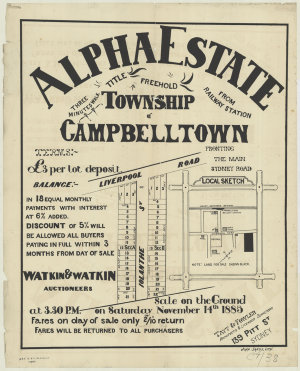 ALPHA ESTATE
THREE MINUTES WALK
TITLE FREEHOLD
FROM RAILWAY STATION
TOWNSHIP
of
CAMPBELLTOWN
FRONTING
THE MAIN
SYDNEY ROAD
TERMS:-
£3 per lot. deposit
BALANCE:-
IN 18 EQUAL MONTHLY
PAYMENTS WITH INTEREST
AT 6% ADDED.
DISCOUNT OF 5% WILL
BE ALLOWED ALL BUYERS
PAYING IN FULL WITHIN 3
MONTHS FROM DAY OF SALE
WATKIN & WATKIN
AUCTIONEERS
LIVERPOOL ROAD
ST
LOCAL SKETCH
NOTE: LAND FOR SALE SHOWN BLACK
Sale on the Ground
at 3.30 P.M. on Saturday November 14th 1885
Fares on day of sale only 2/10 return
FARES WILL BE RETURNED TO ALL PURCHASERS
139 PITT ST
SYDNEY